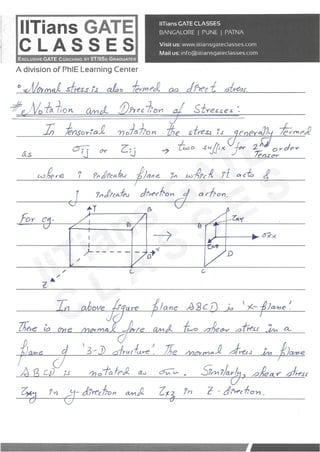 IITians GATE
CLASSES
EXCLUSIVE GATE COACHING BY IIT/IISc GRADUATES
A division of PhIE Learning Center
IITians GATE CLASSES
BANGALORE | PUNE | PATNA
Visit us: www.iitiansgateclasses.com
Mail us: info@iitiansgateclasses.com
* Normal stress is also termed as direct stress.
# Notation and Direction of Stresses :
In tensorial notation the stress is generally termed
as σij or Zij → two suffix for 2nd order
Tensor
where i indicates plane in which it acts &
j indicates direction of action.
For eg.
Y
A
B
X
D
C
Z
→
A
B
Zxy
σxx
Zxz
D
C
In above figure plane ABCD is 'X-plane'
There is one normal force and two shear stress in a
plane of '3-D structure'. The normal stress in plane
ABCD is notated as σxx. Similarly, shear stress
Zxy in y-direction and Zxz in Z-direction.